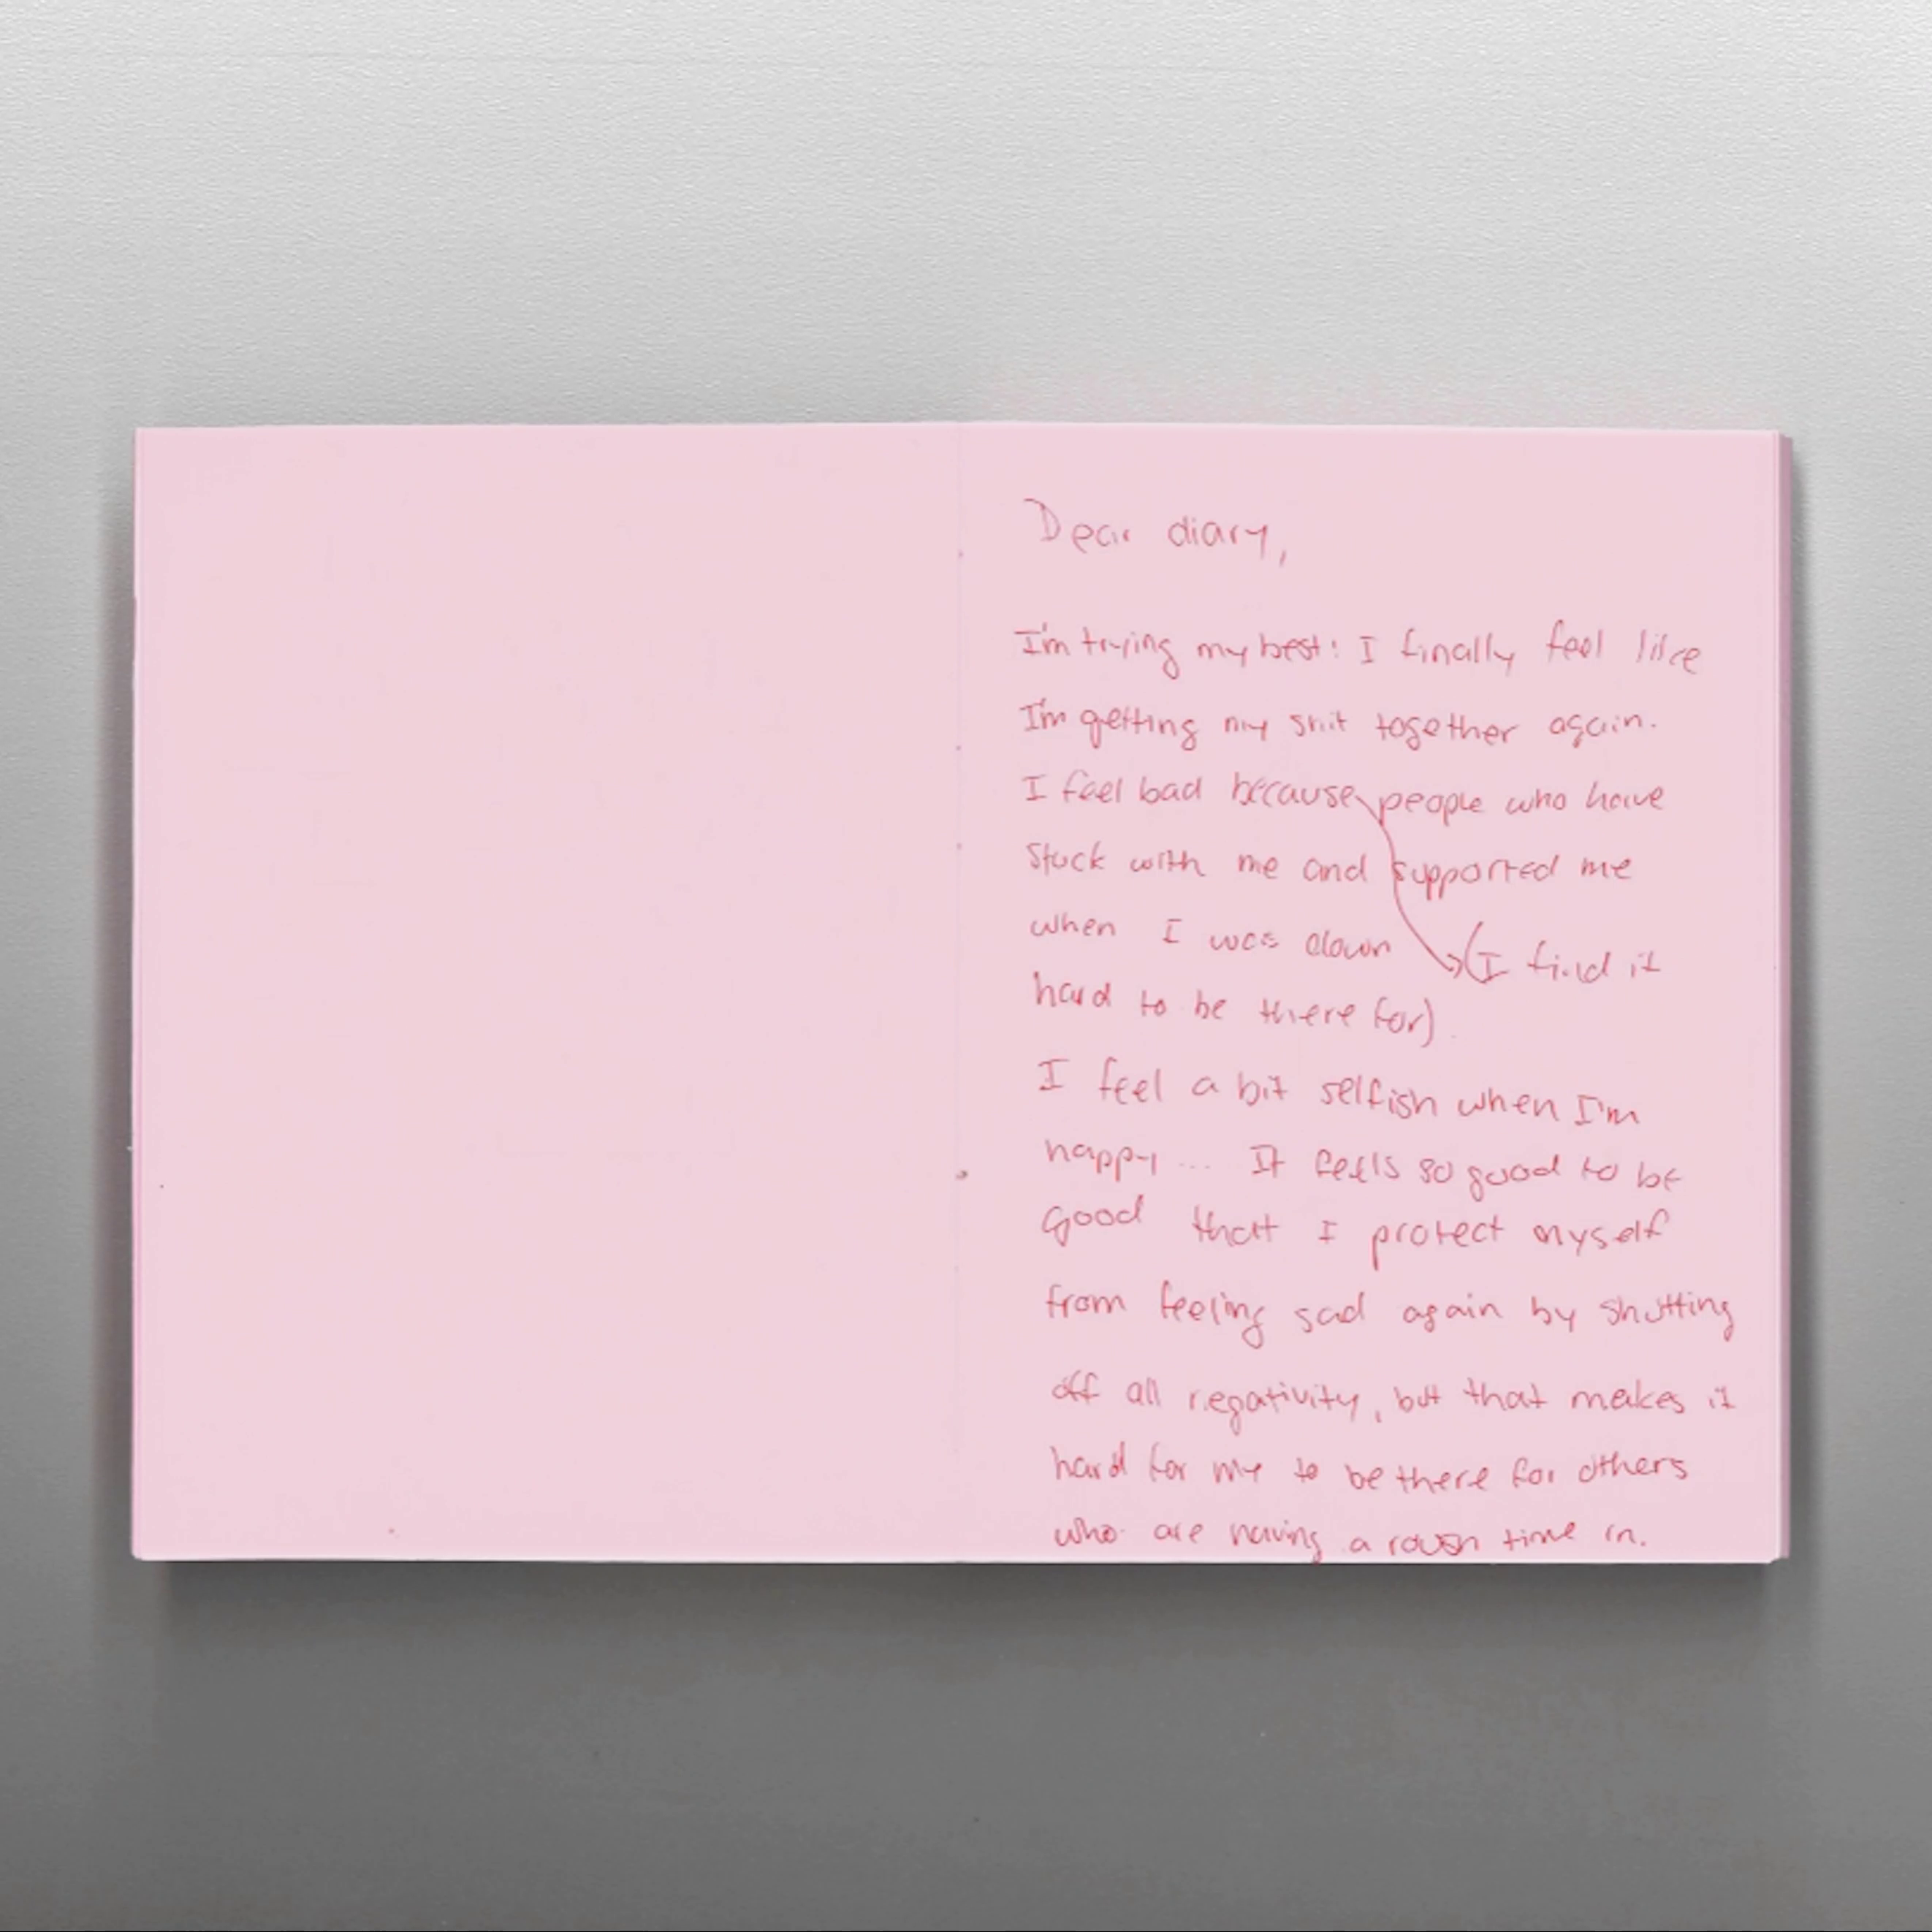 Dear diary,
I'm trying my best! I finally feel like
I'm getting my shit together again.
I feel bad because people who have
stuck with me and supported me
when I was down (I find it
hard to be there for)
I feel a bit selfish when I'm
happy... It feels so good to be
good that I protect myself
from feeling sad again by shutting
off all negativity, but that makes it
hard for me to be there for others
who are having a rough time in.